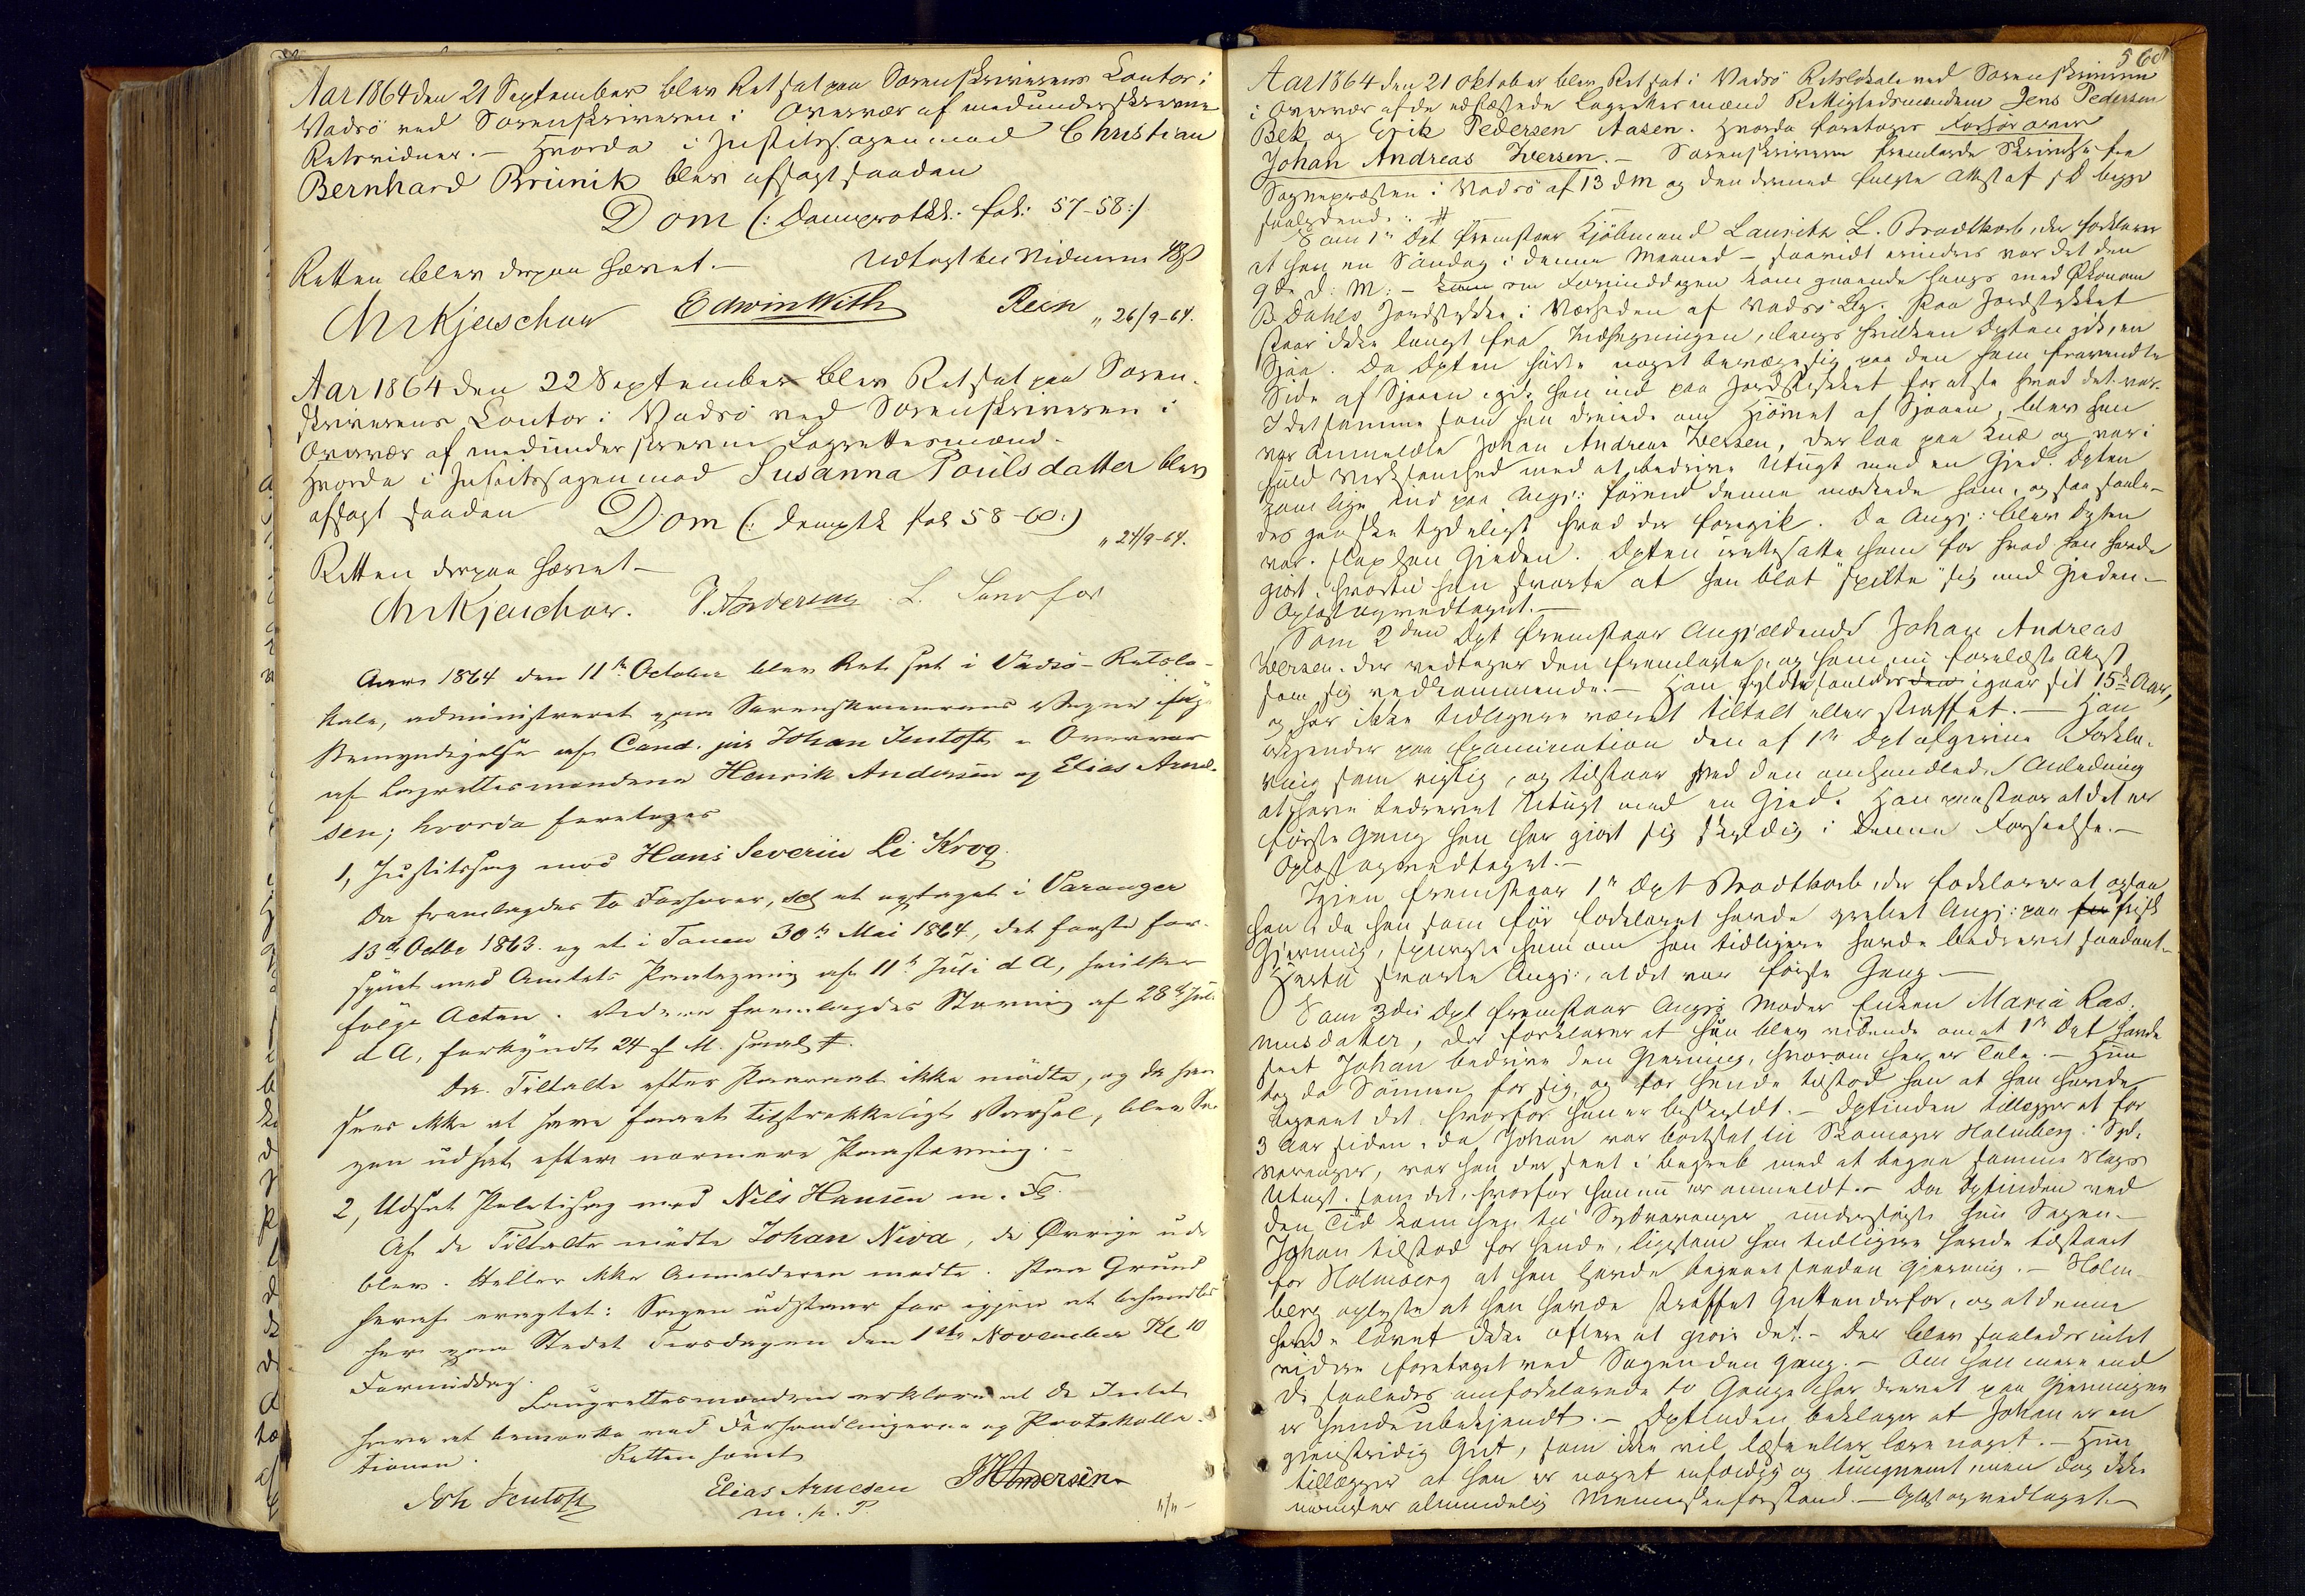 Aar 1864 den 21 September blev Ret sat paa Sorenskriverens Contor i
Vadsö ved Sorenskriveren i Overvær af medunderskrevne
Retsvidner. – Hvorda i Justitssagen mod Christian
Bernhard Brünik blev afsagt saadan
Dom (: Domsprotkl: fol: 57-58 :)
Retten blev derpaa hævet. –
Edwin With
Rein
" 26/9-64.
Aar 1864 den 22 September blev Ret sat paa Soren-
skriverens Contor i Vadsö ved Sorenskriveren i
Overvær af medunderskrevne Lagrettesmænd.
Hvorda i Justitssagen mod Susanna Poulsdatter blev
afsagt saadan Dom (: domptk fol 58-60 :)
" 24/9-64.
Retten derpaa hævet –
Aar 1864 den 11te October blev Ret sat i Vadsö Retslo-
kale, administreret paa Sorenskriverens Vegne ifølge
Bemyndigelse af Cand. jur Johan Jentoft i Overvær
af Lagrettesmændene Henrik Andersen og Elias Arne-
sen; hvorda foretoges
1, Justitssag mod Hans Severin Li Krog.
Der fremlagdes to Forhører, et optaget i Varanger
13de Octbr 1863 og et i Tanen 30te Mai 1864, det første for-
synet med Amtets Paategning af 11te Juli d A, hvilke
følge Acten. Videre fremlagdes Stævning af 28de Juli
d A, forkyndt 24 f M. saal #.
Da Tiltalte efter Paaraab ikke mødte, og da han
sees ikke at have faaet tilstrækkeligt Varsel, blev Sa-
gen udsat efter nærmere Paastævning. –
2, Udsat Politisag mod Nils Hansen m. Fl.
Af de Tiltalte mødte Johan Niva, de Øvrige ude
blev. Heller ikke Anmelderen mødte. Paa Grund
heraf eragtet: Sagen udstaar for igjen at behandles
her paa Stedet Torsdagen den 1ste November Kl 10
Formiddag.
Laugrettesmændene erklære at de Intet
have at bemærke ved Forhandlingerne og Protokolla-
tionen. Retten hævet
Joh Jentoft Elias Arnesen HAndersen
m. p. P.
560
Aar 1864 den 21 Oktober blev Ret sat i Vadsö Retslokale ved Sorenskriveren
i Overvær af de edfæstede Lagrettesmænd Rettighedsmændene Jens Pedersen
Bek og Erik Pedersen Aasen. Hvorda foretoges Forhör over
Johan Andreas Iversen. – Sorenskriveren fremlagde Skrivelse fra
Sognepræsten i Vadsö af 13 d M og den dermed fulgte Attest af s D begge
saalydende: #
Som 1ste Dpt fremstaar Kjöbmand Lauritz L. Brodtkorb, der forklarer
at han en Söndag i denne Maaned – saavidt erindres var det den
9de d: M: – om Formiddagen kom gaaende langs med Økonom
B Dahls Jordstykke i Nærheden af Vadsö By. Paa Jordstykket
staar ikke langt fra Indhegningen, langs hvilken Dpten gik, en
Sjaa. Da Dpten hörte noget bevæge sig paa den ham fravendte
Side af Sjaaen, gik han ind paa Jordstykket for at se hvad det var.
I det samme som han dreiede om Hjörnet af Sjaaen, blev han
var Anmeldte Johan Andreas Iversen, der laa paa Knæ og var i
fuld Virksomhed med at bedrive Utugt med en Gjed. Dpten
kom lige ind paa Angj: förend denne mærkede ham, og saa saale-
des ganske tydeligt hvad der foregik. Da Angj: blev Dpten
var, slap han Gjeden. Dpten irettesatte ham for hvad han havde
gjort, hvortil han svarte at han blot "spilte" sig med Gjeden. –
Oplæst og vedtaget. –
Som 2den Dpt fremstaar Angjældende Johan Andreas
Iversen, der vedtager den fremlagte, og ham nu forelæste Attest
som sig vedkommende. – Han fyldte saaledes igaar sit 15de Aar,
og har ikke tidligere været tiltalt eller straffet. – Han
erkjender paa Examination den af 1ste Dpt afgivne Forkla-
ring som rigtig, og tilstaar ved den omhandlede Anledning
at have bedrevet Utugt med en Gjed. Han paastaar at det er
förste Gang han har gjort sig skyldig i denne Forseelse. –
Oplæst og vedtaget. –
Igjen fremstaar 1ste Dpt Brodtkorb, der forklarer at ogsaa
han, da han som för forklaret havde grebet Angj: paa fersk
Gjerning, spurgte ham om han tidligere havde bedrevet saadant. –
Hertil svarte Angj:, at det var förste Gang. –
Som 3die Dpt fremstaar Angjs Moder Enken Maria Ras-
musdatter, der forklarer at hun blev vidende om at 1ste Dpt havde
seet Johan bedrive den Gjerning, hvorom her er Tale. – Hun
tog da Sönnen for sig, og for hende tilstod han at han havde
begaaet det, hvorfor han er beskyldt. – Dptinden tillægger at for
3 Aar siden, da Johan var bortsat til Skomager Holmberg i Syd-
varanger, var han der seet i Begreb med at begaa samme Slags
Utugt, som det, hvorfor han nu er anmeldt. – Da Dptinden ved
den Tid kom hen til Sydvaranger undersögte hun Sagen. –
Johan tilstod for hende, ligesom han tidligere havde tilstaaet
for Holmberg at han havde begaaet saadan Gjerning. – Holm-
berg oplyste at han havde straffet Gutten derfor, og at denne
havde lovet ikke oftere at gjöre det. – Der blev saaledes intet
videre foretaget ved Sagen den Gang. – Om han mere end
de saaledes omforklarede to Gange har drevet paa Gjerningen
er hende ubekjendt. – Dptinden beklager at Johan er en
gjenstridig Gut, som ikke vil læse eller lære noget. – Hun
tillægger at han er noget enfoldig og tungnemt, men dog ikke
mangler almindelig Menneskeforstand. – Oplæst og vedtaget. –